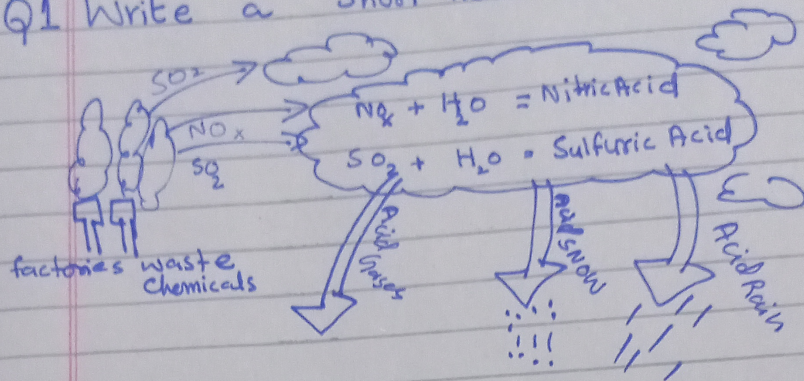 Q1 Write a Short
SO2
NOx + H2O = Nitric Acid
NOx
SO2
SO2 + H2O = Sulfuric Acid
factories waste
Chemicals
Acid Gases
Acid SNOW
Acid Rain